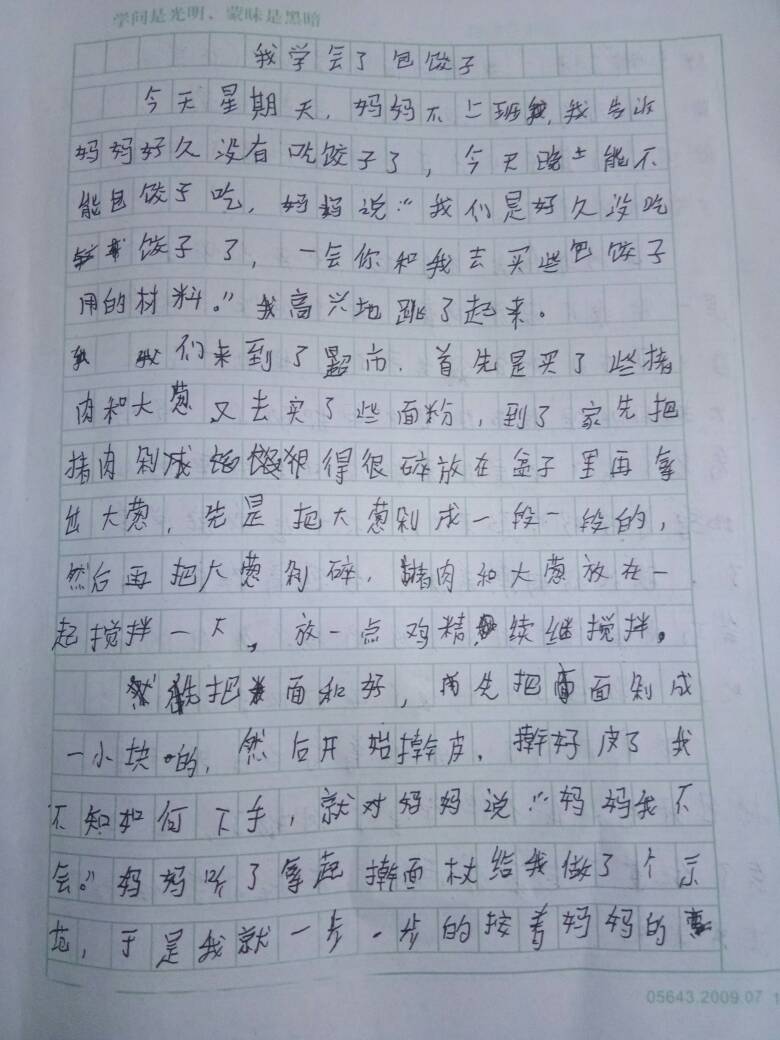 学问是光明，蒙昧是黑暗
我学会了包饺子
今天星期天，妈妈不上班，我告诉
妈妈好久没有吃饺子了，今天晚上能不
能包饺子吃，妈妈说："我们是好久没吃
饺子了，一会你和我去买些包饺子
用的材料。"我高兴地跳了起来。
我们来到了超市，首先是买了些猪
肉和大葱，又去买了些面粉，到了家先把
猪肉剁成馅剁得很碎放在盆子里再拿
出大葱，先是把大葱剁成一段一段的，
然后再把大葱剁碎，猪肉和大葱放在一
起搅拌一下，放一点鸡精，续继搅拌。
先把面和好，先把面剁成
一小块的，然后开始擀皮，擀好皮了我
不知如何下手，就对妈妈说："妈妈我不
会。"妈妈听了拿起擀面杖给我做了个示
范，于是我就一步一步的按着妈妈的
05643.2009.07 1